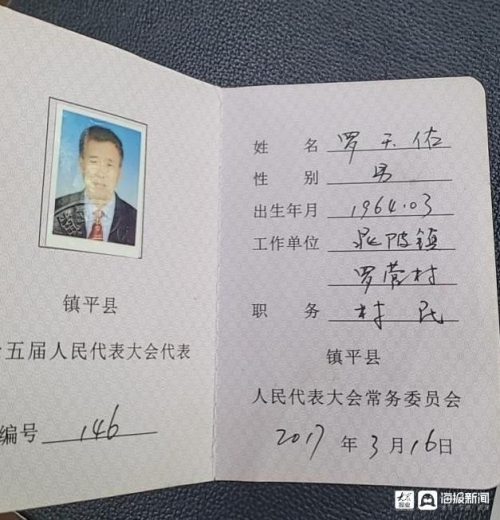 镇平县
十五届人民代表大会代表
编号 146
姓 名 罗天佑
性 别 男
出生年月 1964.03
工作单位 晁陂镇
罗营村
职 务 村民
镇平县
人民代表大会常务委员会
2017 年 3 月 16 日
大众报业 海报新闻